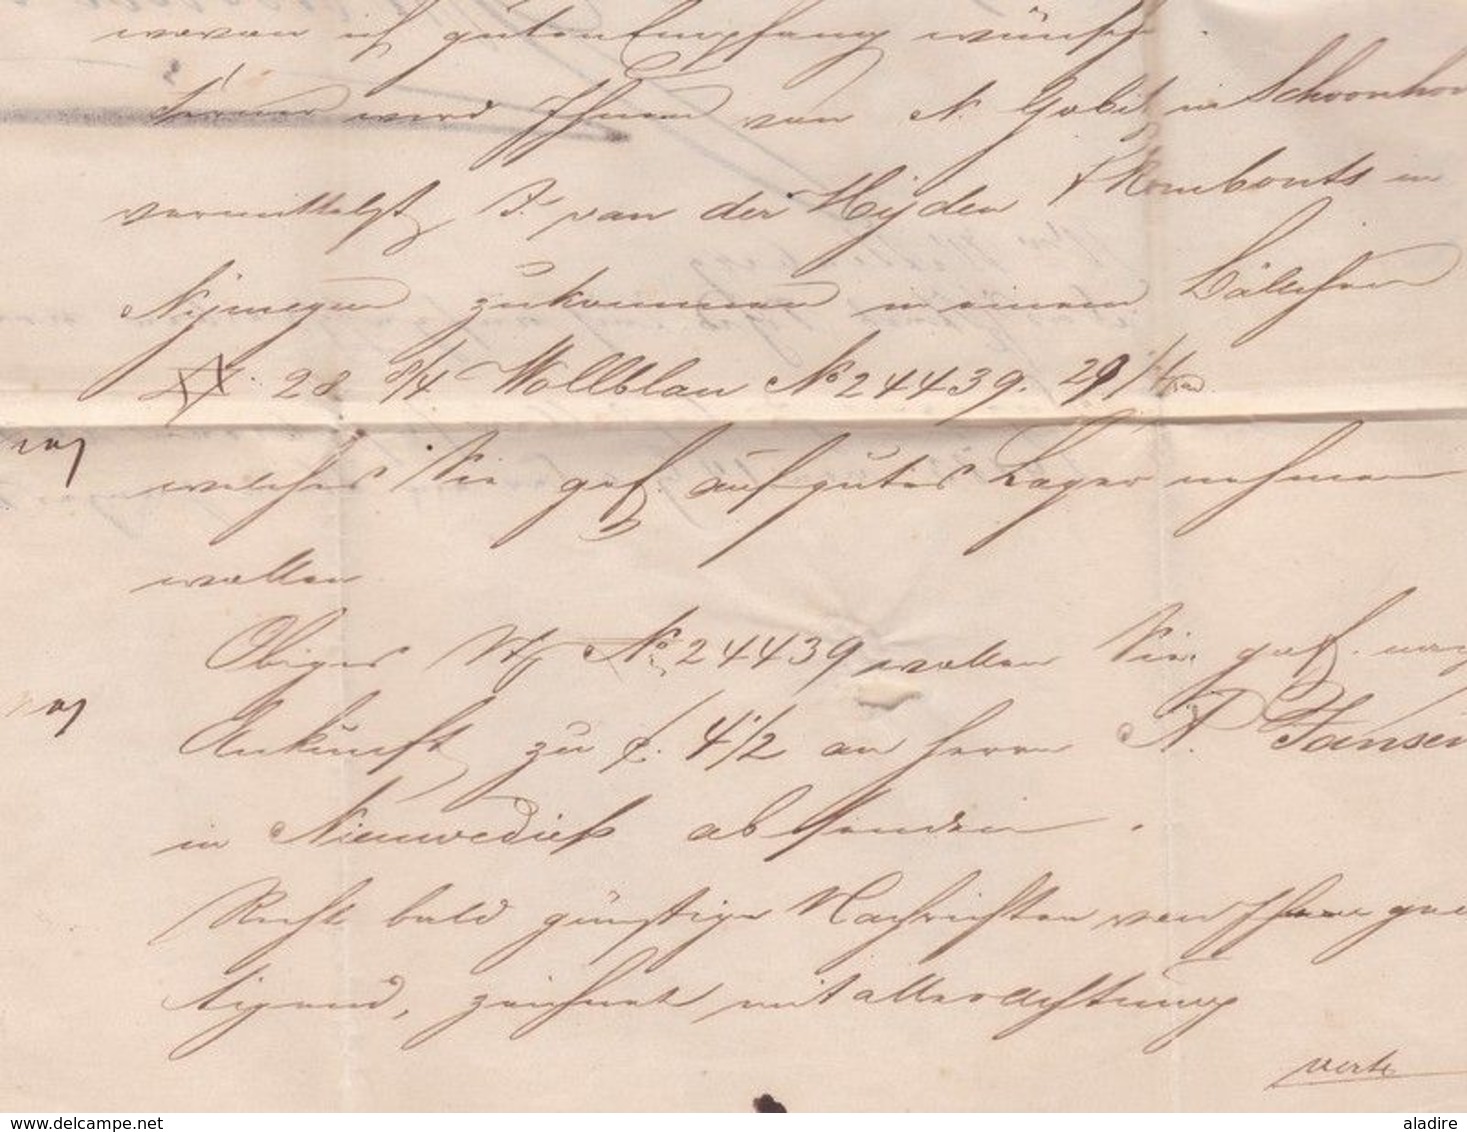 wovon ich guten Empfang wünsche.
Ferner wird Ihnen von N. Gobits in Schoonhov
vermittelst F. van der Heijden & Rombouts in
Nijmegen zukommen in einem Bällchen
28 8/4 Wollblau No 24439. 29 1/4
welches Sie gef. auf gutes Lager nehmen
wollen
Obiges No 24439 wollen Sie gef. nach
Ankunft zu f. 4 1/2 an Herrn A. Jansen
in Nieuwediep absenden.
Recht bald günstige Nachrichten von Ihnen gew
tigend, zeichnet mit aller Achtung
verte
delcampe.net
aladire